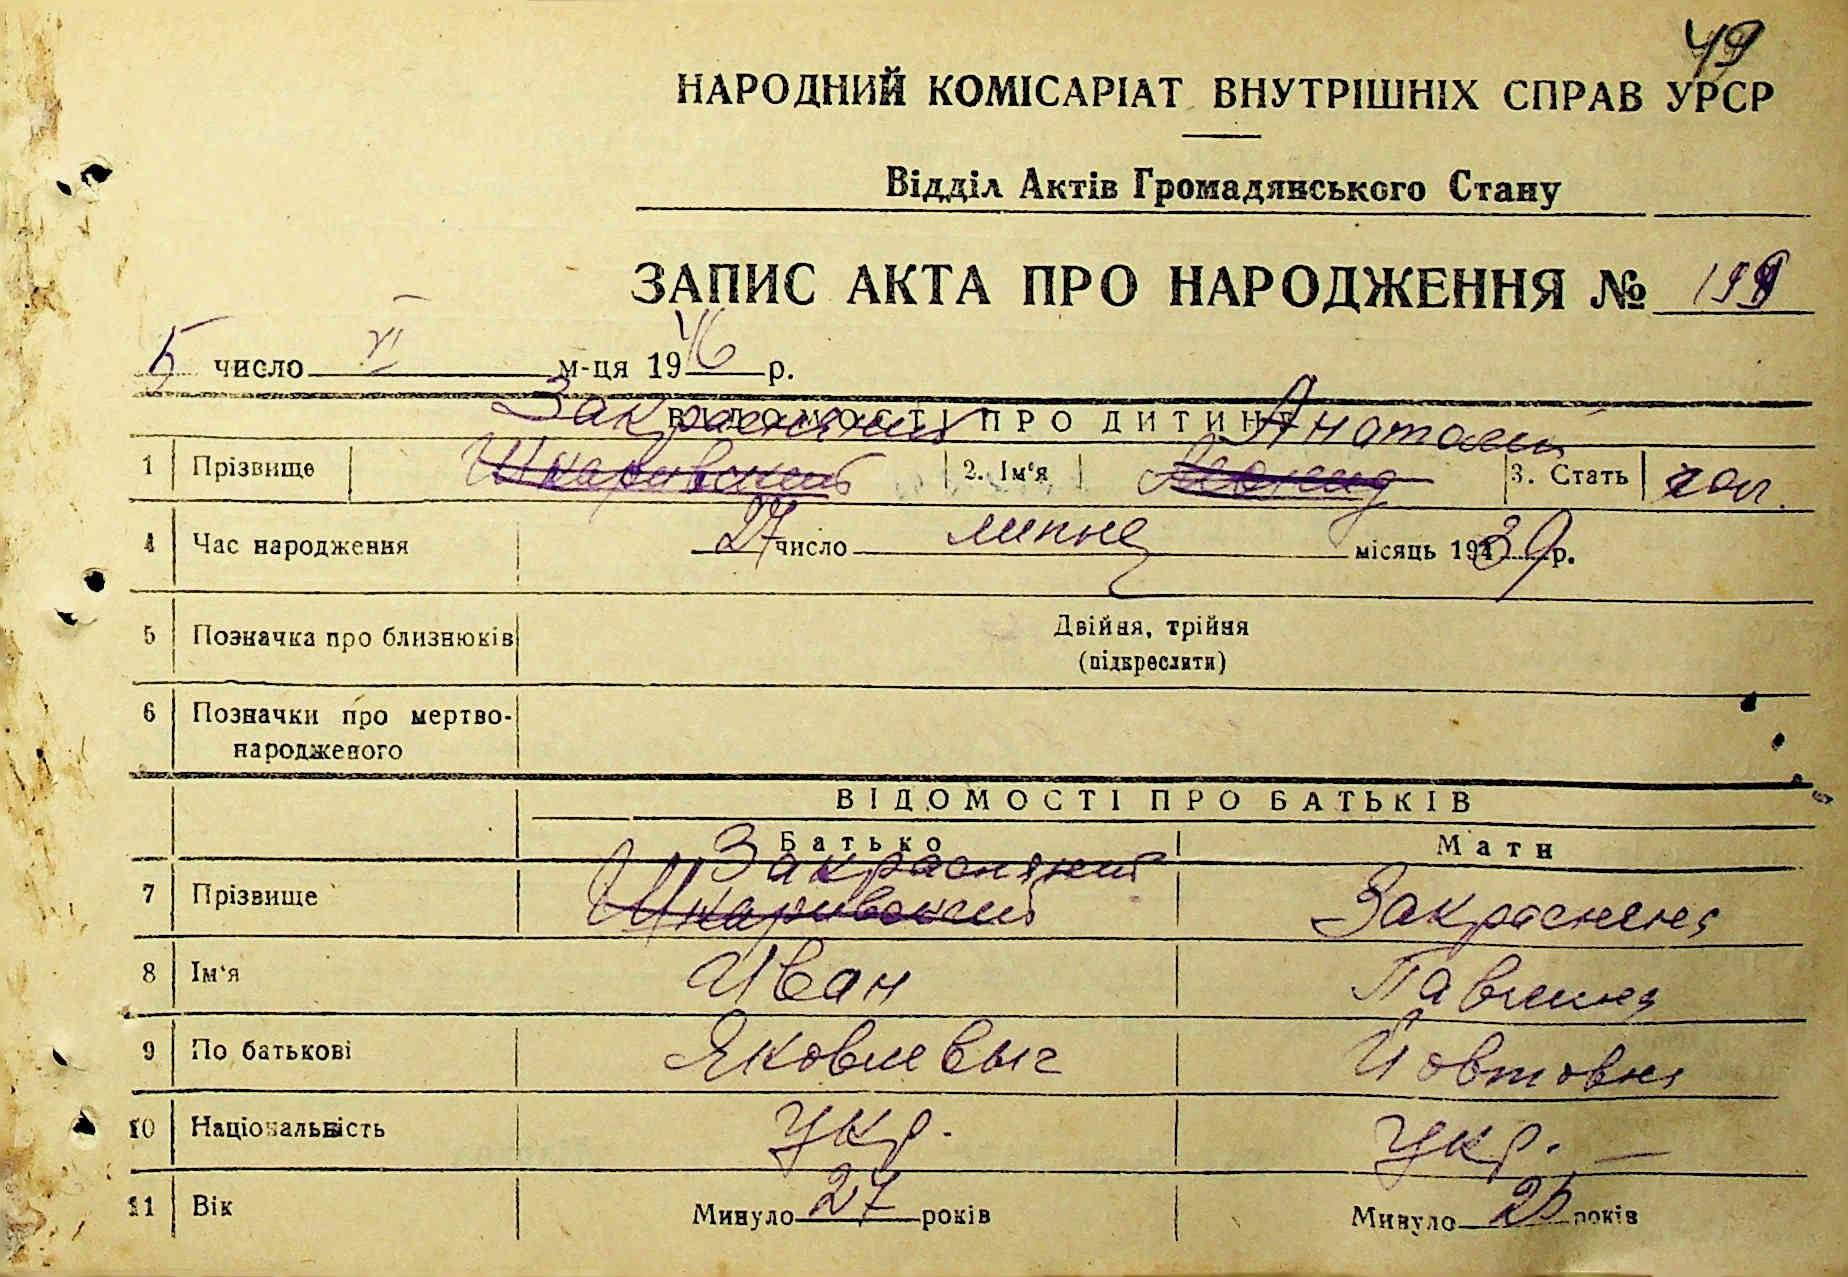 49
НАРОДНИЙ КОМІСАРІАТ ВНУТРІШНІХ СПРАВ УРСР
Відділ Актів Громадянського Стану
ЗАПИС АКТА ПРО НАРОДЖЕННЯ № 199
5 число VI м-ця 1946 р.
ВІДОМОСТІ ПРО ДИТИНУ
Закрасняний Анатолий
1 Прізвище Шкаривский 2. Ім'я Леонид 3. Стать чол.
4 Час народження 27 число липня місяць 1939 р.
5 Позначка про близнюків Двійня, трійня
(підкреслити)
6 Позначки про мертво-
народженого
ВІДОМОСТІ ПРО БАТЬКІВ
Батько Мати
Закрасняний
7 Прізвище Шкаривский Закрасняна
8 Ім'я Иван Павлина
9 По батькові Яковлевыч Йовтовна
10 Національність укр. укр.
11 Вік Минуло 27 років Минуло 25 років